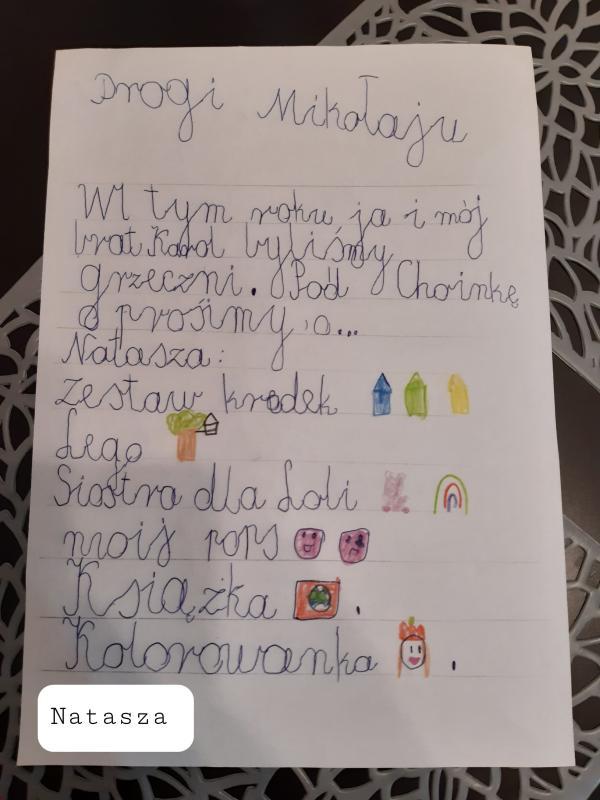 Drogi Mikołaju
W tym roku ja i mój
brat Karol byliśmy
grzeczni. Pod Choinkę
prosimy o...
Natasza:
Zestaw kredek
Lego
Siostra dla Loli
moij pops
Książka .
Kolorowanka .
Natasza